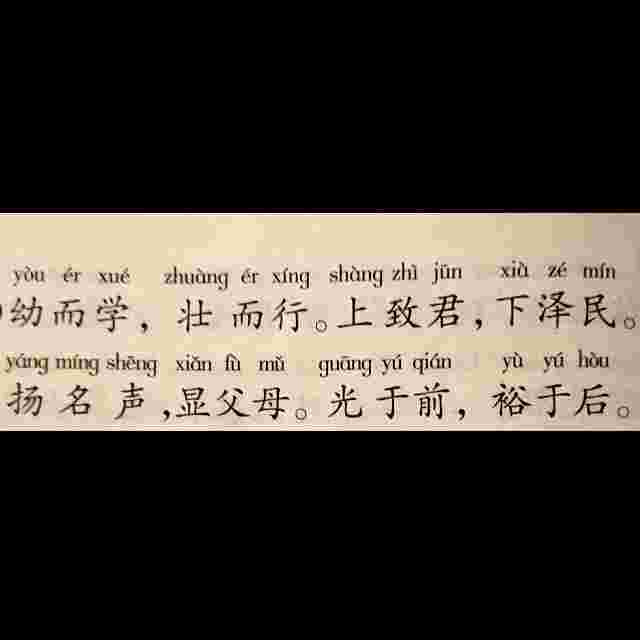 yòu ér xué zhuàng ér xíng shàng zhì jūn xià zé mín
幼而学，壮而行。上致君，下泽民。
yáng míng shēng xiǎn fù mǔ guāng yú qián yù yú hòu
扬名声，显父母。光于前，裕于后。